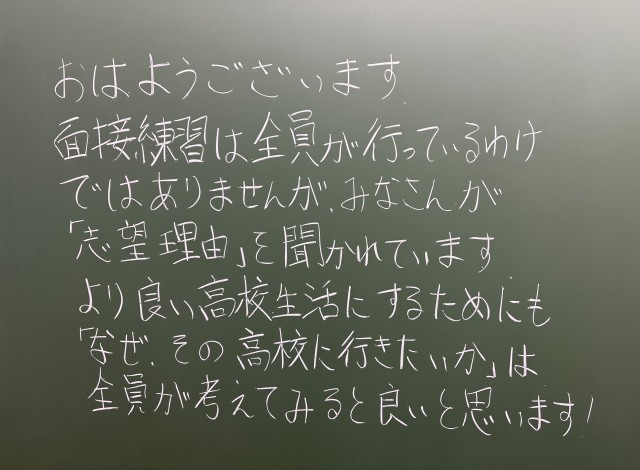 おはようございます.
面接練習は全員が行っているわけ
ではありませんが、みなさんが
「志望理由」を聞かれています
より良い高校生活にするためにも
「なぜ、その高校に行きたいか」は
全員が考えてみると良いと思います!